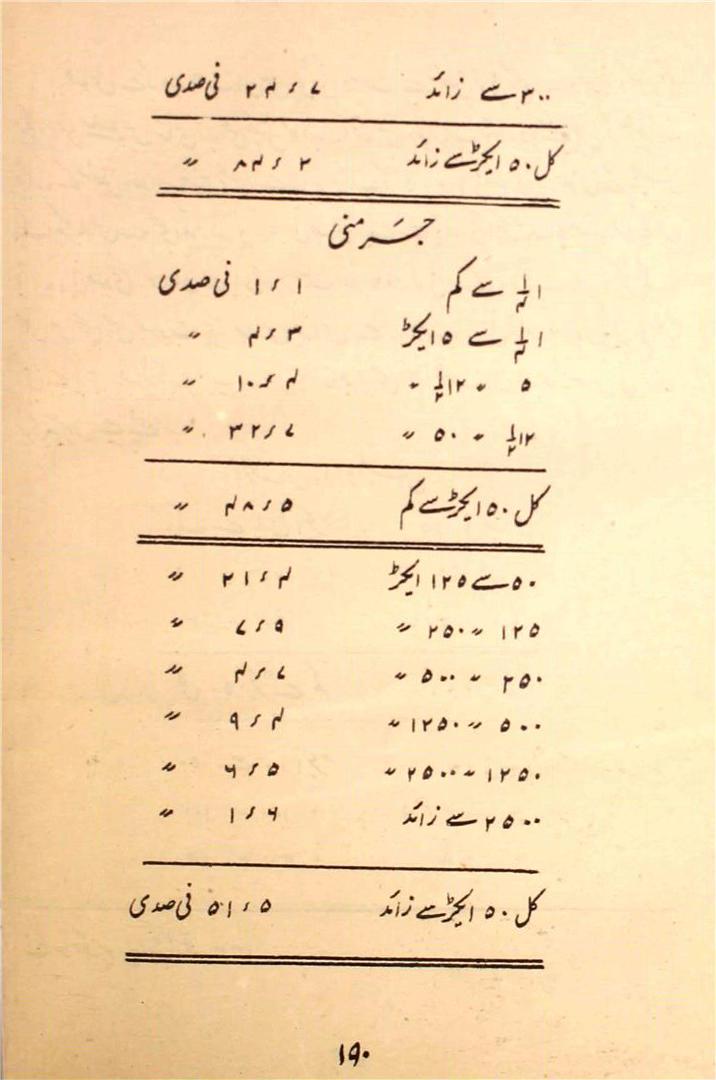 ۳۰۰ سے زائد ۲۴ء۷ فی صدی
کل ۵۰ ایکڑ سے زائد ۸۴ء۲ 〃
جرمنی
۱ ۱/۴ سے کم ۱ء۱ فی صدی
۱ ۱/۴ سے ۵ ایکڑ ۴ء۳ 〃
۵ 〃 ۱۲ ۱/۲ 〃 ۱۰ء۴ 〃
۱۲ ۱/۲ 〃 ۵۰ 〃 ۳۲ء۷ 〃
کل ۵۰ ایکڑ سے کم ۴۸ء۵ 〃
۵۰ سے ۱۲۵ ایکڑ ۲۱ء۴ 〃
۱۲۵ 〃 ۲۵۰ 〃 ۷ء۹ 〃
۲۵۰ 〃 ۵۰۰ 〃 ۴ء۷ 〃
۵۰۰ 〃 ۱۲۵۰ 〃 ۹ء۴ 〃
۱۲۵۰ 〃 ۲۵۰۰ 〃 ۶ء۵ 〃
۲۵۰۰ سے زائد ۱ء۶ 〃
کل ۵۰ ایکڑ سے زائد ۵۱ء۵ فی صدی
۱۹۰